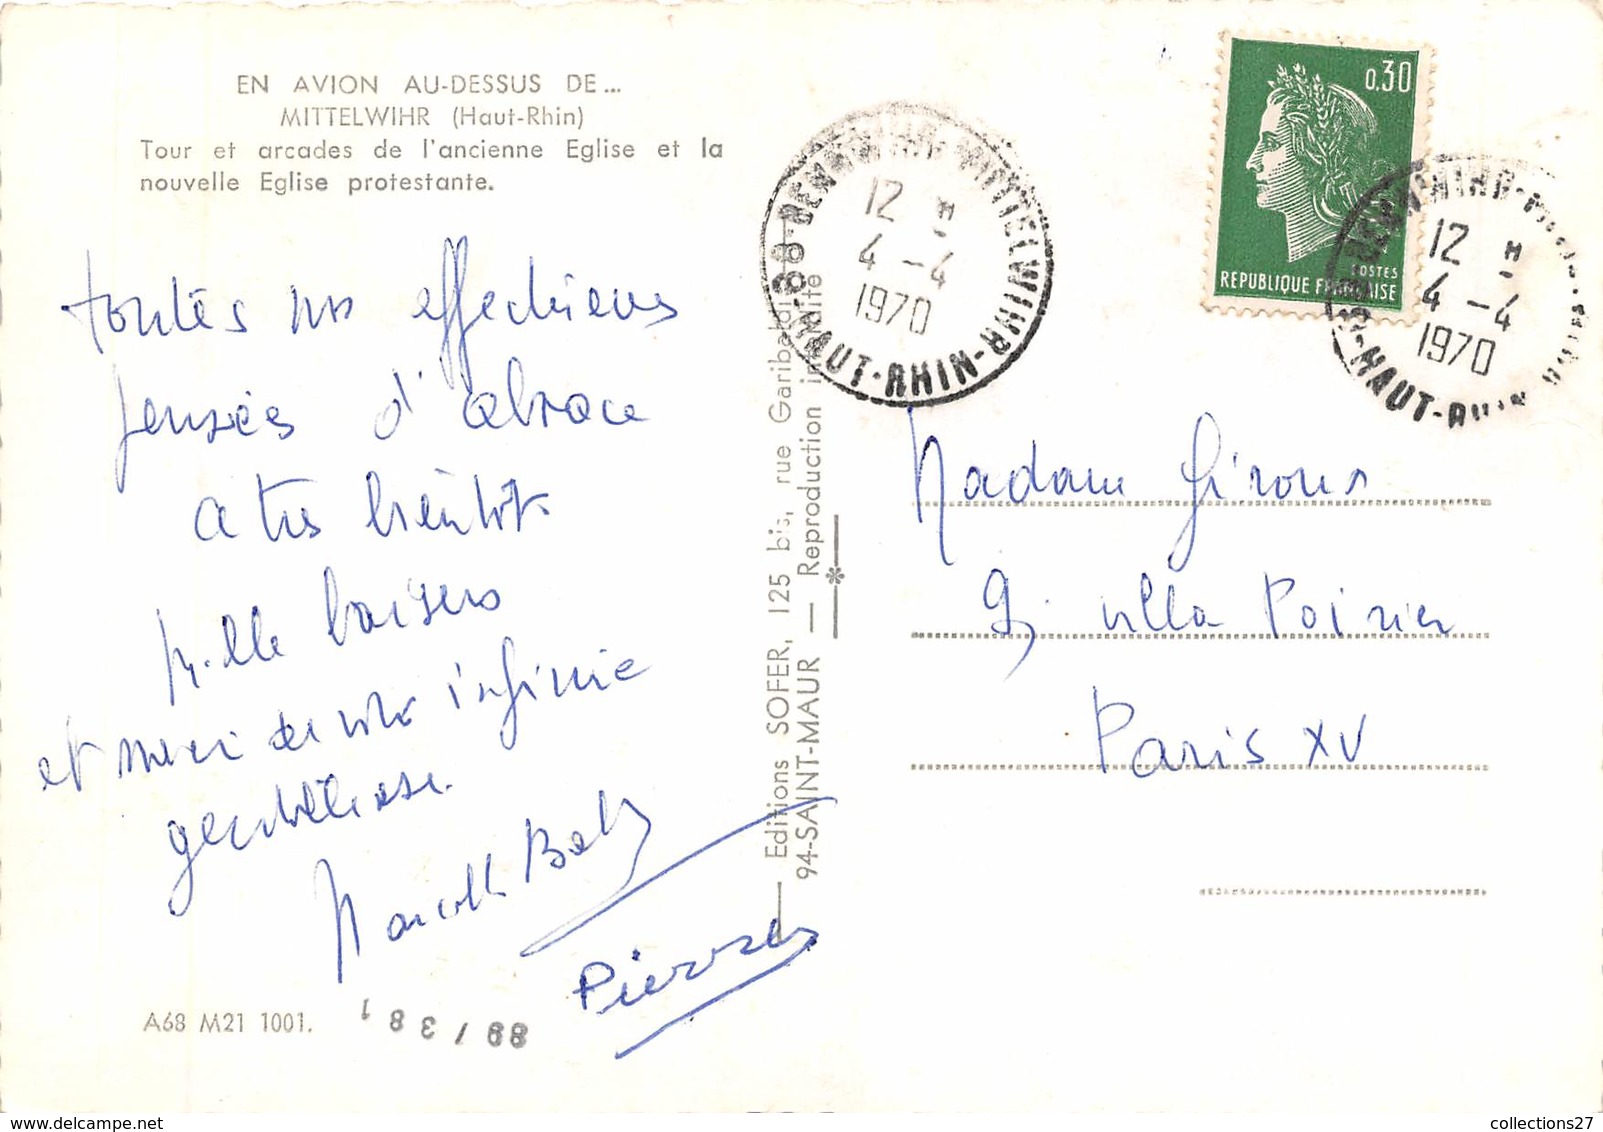 EN AVION AU-DESSUS DE...
MITTELWIHR (Haut-Rhin)
Tour et arcades de l'ancienne Eglise et la
nouvelle Eglise protestante.
toutes nos affectueuses
pensées d'alsace
a très bientôt
Mille baisers
et merci de votre infinie
gentillesse.
Marcelle
Pierre
A68 M21 1001.
Editions SOFER, 125 bis, rue Garibaldi
94-SAINT-MAUR — Reproduction interdite
68-BENNWIHR-MITTELWIHR
12 H
4 -4
1970
HAUT-RHIN
0,30
POSTES
REPUBLIQUE FRANÇAISE
12 H
4 -4
1970
HAUT-RHIN
Madame Giroux
9, villa Poirier
Paris XV
collections27